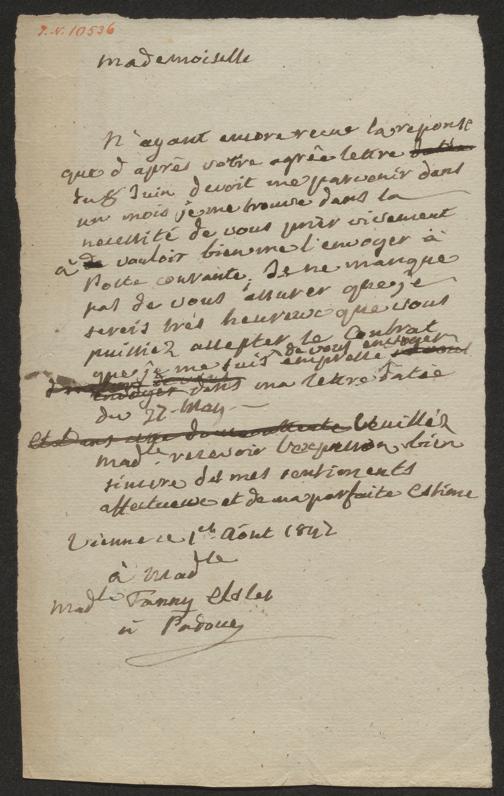 I.N. 10536
Mademoiselle
N'ayant encore recue la reponse
que d'après votre agrée lettre
du 8 Juin devoit me parvenir dans
un mois je me trouve dans la
necessité de vous prier vivement
à de vouloir bien me l'envoyer à
Poste courante. Je ne manque
pas de vous assurer que je
serois très heureux que vous
puissiez accepter le Contrat
que je me suis empressé
de vous envoyer
envoyer dans ma lettre datée
du 27 May
Veuillez
Madlle recevoir l'expression bien
sincere de mes sentiments
affectueux et de ma parfaite estime
Vienne ce 1er Août 1842
à Madlle
Madlle Fanny Elsler
à Padoue